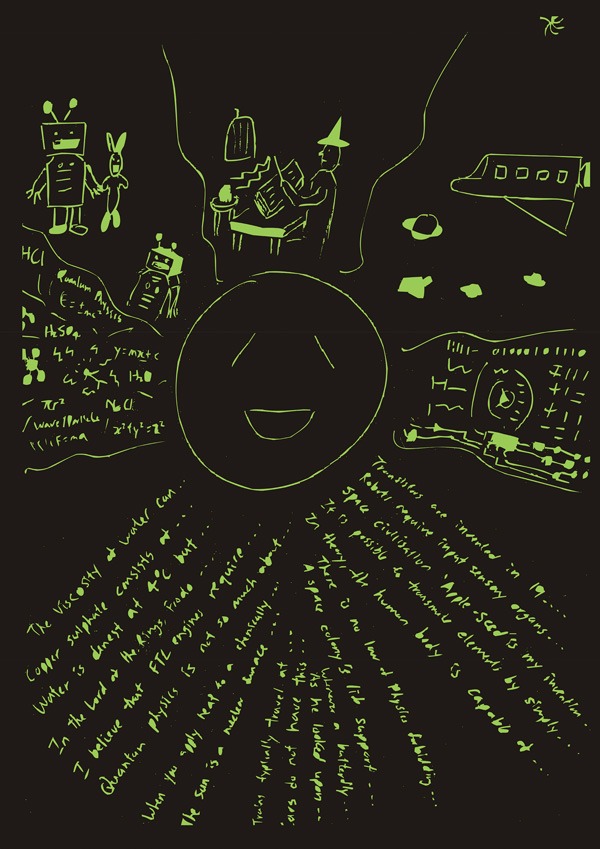 HCl
Quantum Physics
E=+mc²
H₂SO₄
y=mx+c
H₂O
πr²
NaCl
wave/Particle
x²+y²=z²
F=ma
The Viscosity of water can...
Copper sulphate consists of...
Water is densest at 4°C but...
In the Lord of the Rings, Frodo...
I believe that FTL engines require...
Quantum physics is not so much about...
When you apply heat to a chemically...
The sun is a nuclear furnace...
Trains typically travel at...
do not have this...
A space colony's life support...
There is no law of Physics forbidding...
In theory the human body is capable of...
It is possible to transmute elements by simply...
Space civilisation 'Apple-Seed' is my invention...
Robots require input sensory organs...
Transistors are invented in 19...